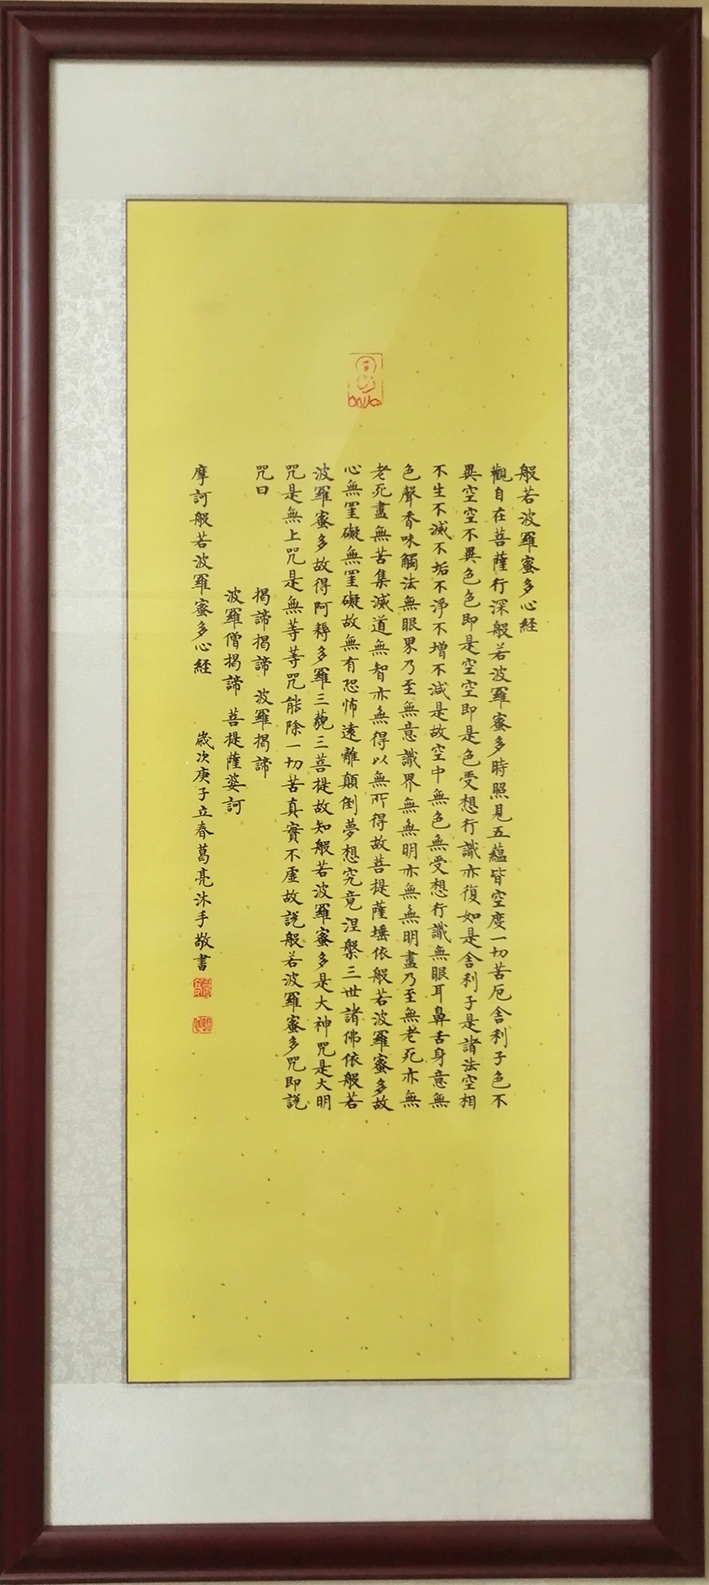 般若波羅蜜多心経
觀自在菩薩行深般若波羅蜜多時照見五蘊皆空度一切苦厄舎利子色不
異空空不異色色即是空空即是色受想行識亦復如是舎利子是諸法空相
不生不滅不垢不淨不增不減是故空中無色無受想行識無眼耳鼻舌身意無
色聲香味觸法無眼界乃至無意識界無無明亦無無明盡乃至無老死亦無
老死盡無苦集滅道無智亦無得以無所得故菩提薩埵依般若波羅蜜多故
心無罣礙無罣礙故無有恐怖遠離顛倒夢想究竟涅槃三世諸佛依般若
波羅蜜多故得阿耨多羅三藐三菩提故知般若波羅蜜多是大神咒是大明
咒是無上咒是無等等咒能除一切苦真實不虛故說般若波羅蜜多咒即說
咒曰
揭諦揭諦 波羅揭諦
波羅僧揭諦 菩提薩婆訶
摩訶般若波羅蜜多心経 歲次庚子立春葛亮沐手敬書